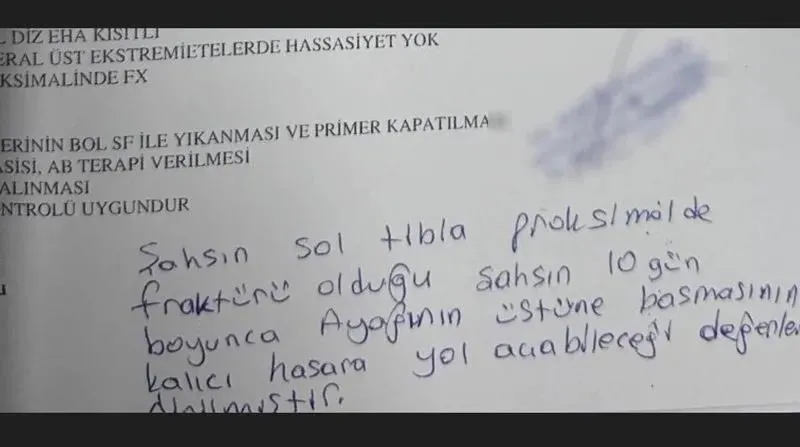 L DİZ EHA KISITLI
ERAL ÜST EKSTREMIETELERDE HASSASİYET YOK
KSİMALİNDE FX
ERİNİN BOL SF İLE YIKANMASI VE PRİMER KAPATILMA
ASİSİ, AB TERAPİ VERİLMESİ
ALINMASI
NTROLÜ UYGUNDUR
Şahsın sol tibla proksimalde
fraktürü olduğu şahsın 10 gün
boyunca Ayağının üstüne basmasının
kalıcı hasara yol açabileceği değenle